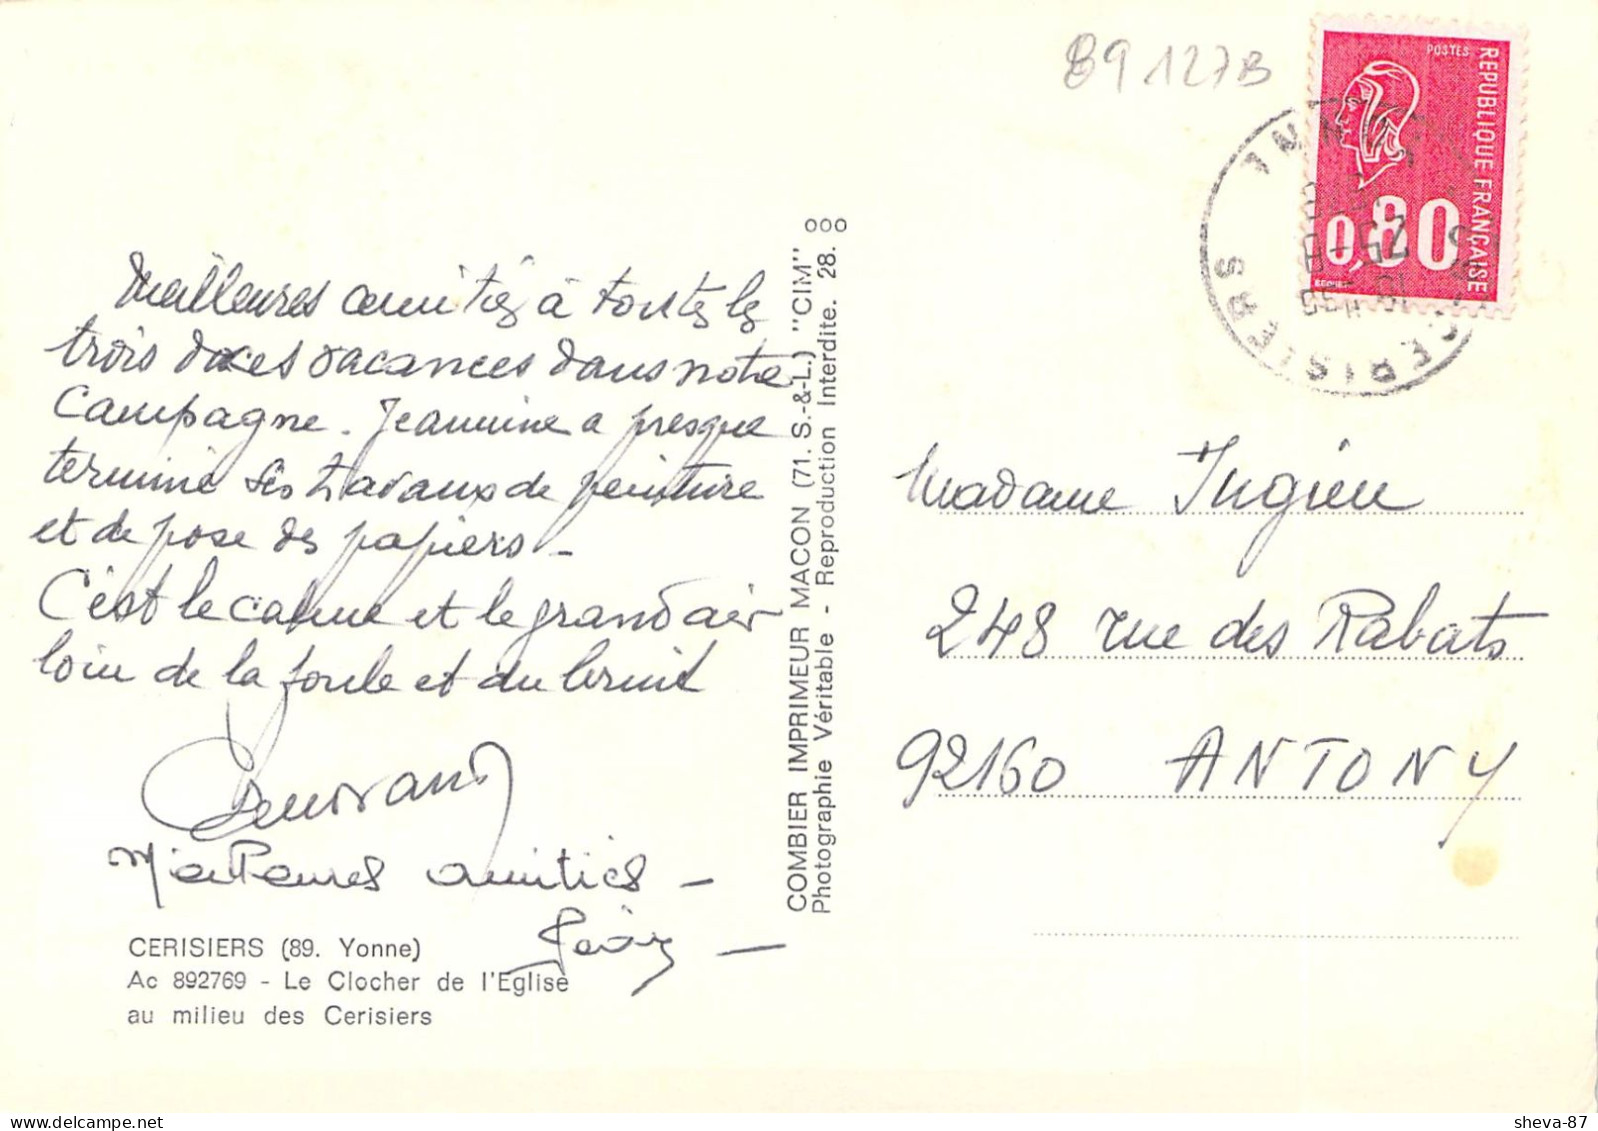 89 127B
POSTES
REPUBLIQUE FRANÇAISE
0,80
CERISIERS
YONNE
Meilleures amitiés à toutes les
trois douces vacances dans notre
Campagne. Jeannine a presque
terminé ses travaux de peinture
et de pose des papiers -
C'est le calme et le grand air
loin de la foule et du bruit
Meilleures amitiés -
CERISIERS (89. Yonne)
Ac 892769 - Le Clocher de l'Eglise
au milieu des Cerisiers
COMBIER IMPRIMEUR MACON (71. S.-&-L.) "CIM"
Photographie Véritable - Reproduction Interdite. 28.
Madame Jugieu
248 rue des Rabats
92160 ANTONY
sheva-87